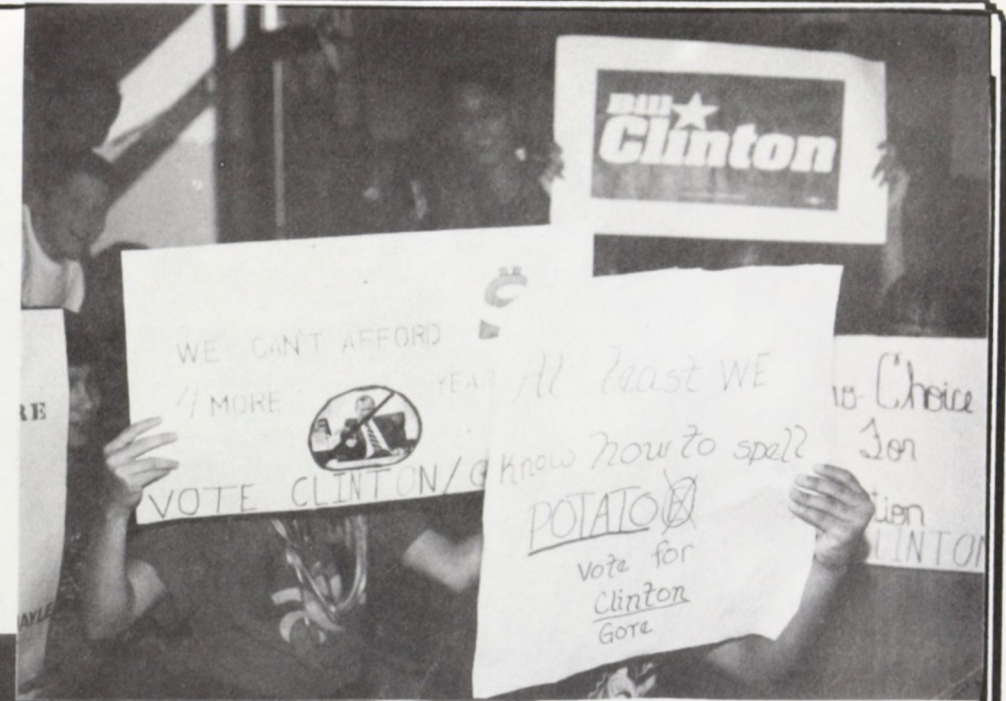 Bill
Clinton
WE CAN'T AFFORD
4 MORE YEA
VOTE CLINTON/G
At least WE
know how to spell
POTATO
Vote for
Clinton
Gore
Choice
For
tion
LINTON
RE
AYLE